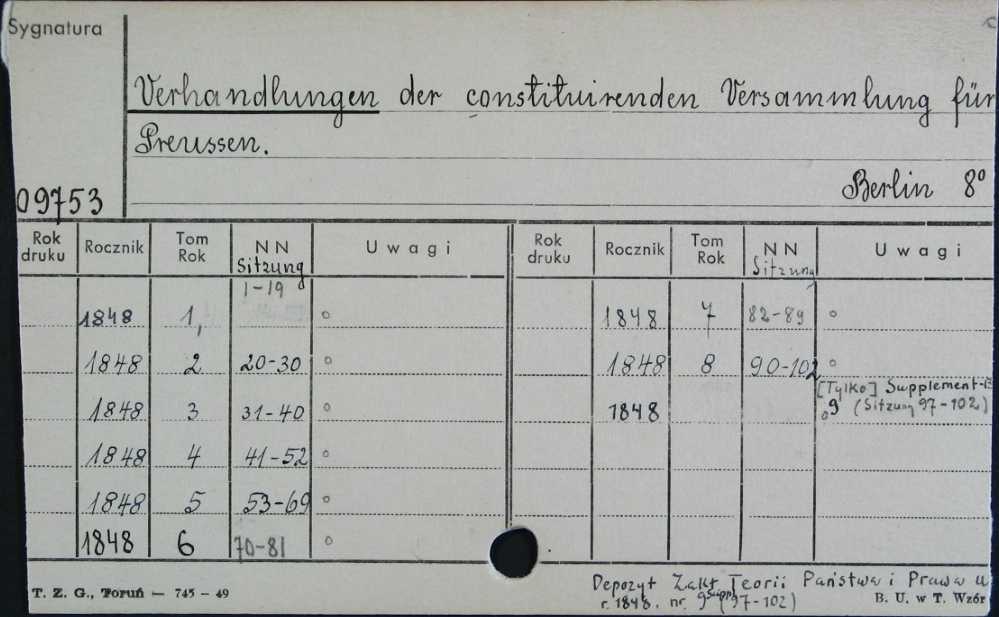 Sygnatura
Verhandlungen der constituirenden Versammlung für
Preussen.
09753
Berlin 8°
Rok druku Rocznik Tom Rok NN Sitzung Uwagi Rok druku Rocznik Tom Rok NN Sitzung Uwagi
1848 1, 1-19 ° 1848 7 82-89 °
1848 2 20-30 ° 1848 8 90-102 °
1848 3 31-40 ° 1848 [Tylko] Supplement- °9 (Sitzung 97-102)
1848 4 41-52 °
1848 5 53-69 °
1848 6 70-81 °
T. Z. G., Toruń — 745 - 49
Depozyt Zakł Teorii Państwa i Prawa U
r. 1848. nr. 9 Suppl (97-102)
B. U. w T. Wzór